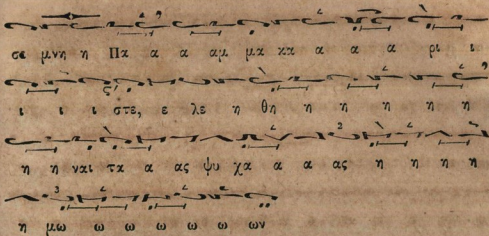 σε μνη η Πα α α αμ μα κα α α α ρι ι
ι ι ι στε, ε λε η θη η η η η η η
η η ναι τα α ας ψυ χα α α ας η η η η
η μω ω ω ω ω ω ων